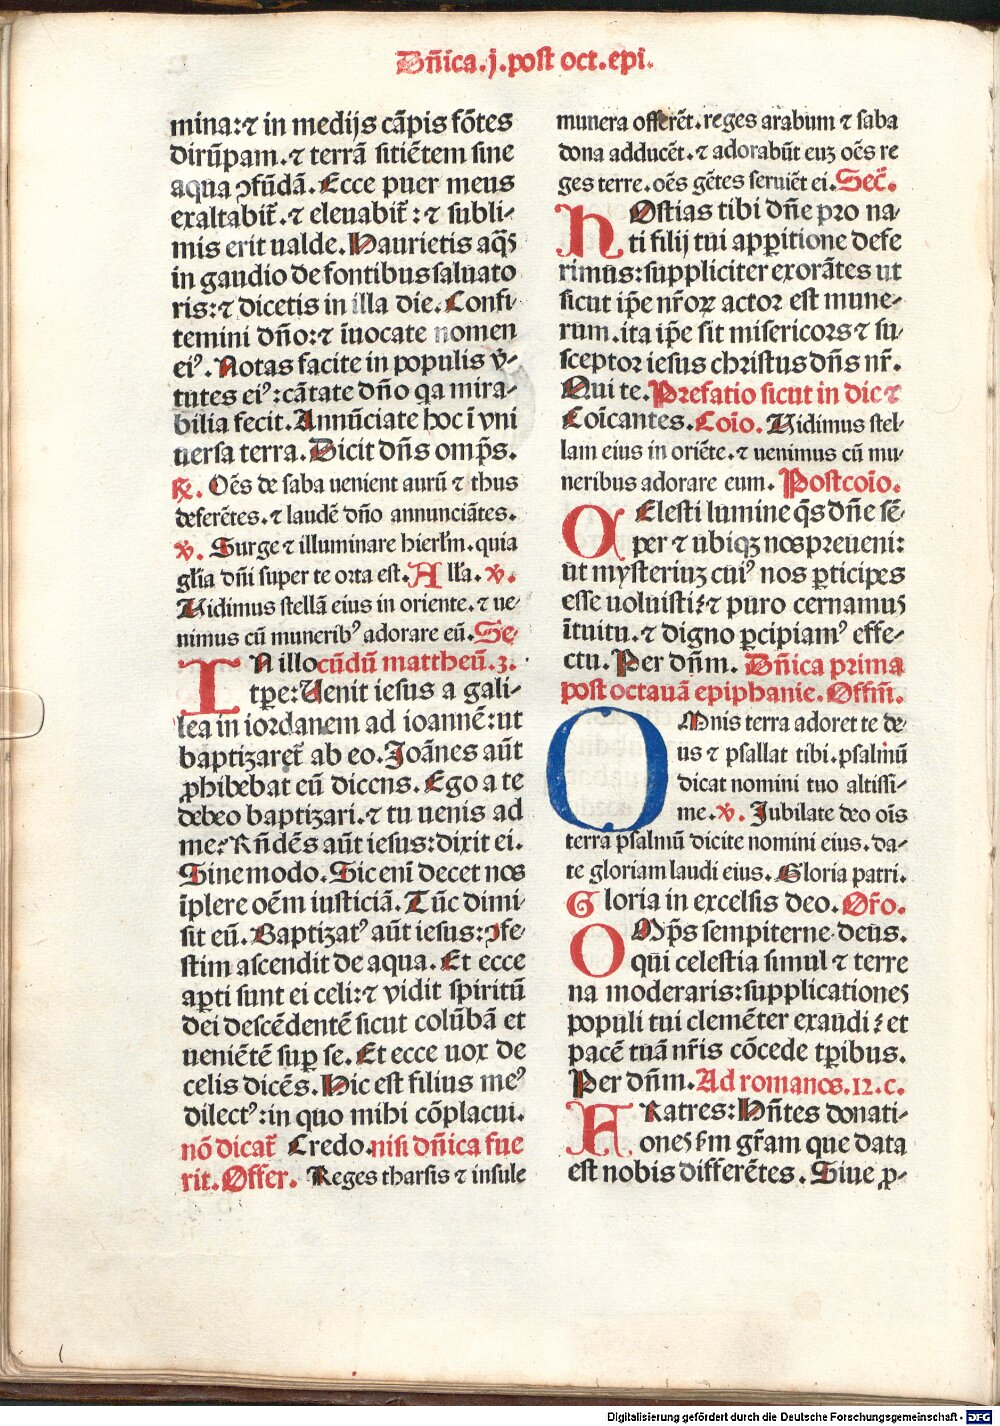 Dñica.j.post oct.epi.
mina:⁊ in medijs cãpis fõtes
dirũpam.⁊ terrã sitiẽtem sine
aqua ↄfũdã.Ecce puer meus
exaltabit̃.⁊ eleuabit̃:⁊ subli-
mis erit ualde.Haurietis aq̃s
in gaudio de fontibus saluato
ris:⁊ dicetis in illa die.Confi-
temini dño:⁊ ĩuocate nomen
eiꝰ.Notas facite in populis v̾-
tutes eiꝰ:cãtate dño qa mira-
bilia fecit.Annũciate hoc ĩ vni
uersa terra.Dicit dñs omp̃s.
℟. Oẽs de saba uenient aurũ ⁊ thus
deferẽtes.⁊ laudẽ dño annunciãtes.
℣. Surge ⁊ illuminare hierl̃m.quia
gl̃ia dñi super te orta est.All̃a.℣.
Uidimus stellã eius in oriente.⁊ ue-
nimus cũ muneribꝰ adorare eũ.Se-
IN illo cũdũ mattheũ.3.
tꝑe:Uenit iesus a gali-
lea in iordanem ad ioannẽ:ut
baptizaret̃ ab eo.Joãnes aũt
ꝓhibebat eũ dicens.Ego a te
debeo baptizari.⁊ tu uenis ad
me?Rñdẽs aũt iesus:dixit ei.
Sine modo.Sic eni decet nos
ĩplere oẽm iusticiã.Tũc dimi-
sit eũ.Baptizatꝰ aũt iesus:ↄfe-
stim ascendit de aqua.Et ecce
aꝑti sunt ei celi:⁊ vidit spiritũ
dei descẽdentẽ sicut colũbã et
ueniẽtẽ suꝑ se.Et ecce uox de
celis dicẽs.Hic est filius meꝰ
dilectꝰ:in quo mihi cõplacui.
nõ dicat̃ Credo.nisi dñica fue
rit.Offer. Reges tharsis ⁊ insule
munera offerẽt.reges arabum ⁊ saba
dona adducẽt.⁊ adorabũt euꝫ oẽs re
ges terre.oẽs gẽtes seruiẽt ei.Sec̃.
HOstias tibi dñe pro na-
ti filij tui apꝑitione defe
rimus:suppliciter exorãtes ut
sicut ip̃e nr̃oꝝ actor est mune-
rum.ita ip̃e sit misericors ⁊ su-
sceptor iesus christus dñs nr̃.
Qui te.Prefatio sicut in die ⁊
Coĩcantes.Coĩo. Uidimus stel-
lam eius in oriẽte.⁊ uenimus cũ mu-
neribus adorare eum. Postcoĩo.
CElesti lumine q̃s dñe sẽ-
per ⁊ ubiqꝫ nos preueni:
ut mysteriuꝫ cuiꝰ nos ꝑticipes
esse uoluisti:⁊ puro cernamus
ĩtuitu.⁊ digno ꝑcipiamꝰ effe-
ctu.Per dñm. Dñica prima
post octauã epiphanie. Offm̃.
OMnis terra adoret te de-
us ⁊ psallat tibi.psalmũ
dicat nomini tuo altissi-
me.℣. Jubilate deo oĩs
terra psalmũ dicite nomini eius.da-
te gloriam laudi eius.Gloria patri.
Gloria in excelsis deo.Or̃o.
OMp̃s sempiterne deus.
qui celestia simul ⁊ terre
na moderaris:supplicationes
populi tui clemẽter exaudi:et
pacẽ tuã nr̃is cõcede tꝑibus.
Per dñm.Ad romanos.12.c.
FRatres:Hñtes donati-
ones ẜm gr̃am que data
est nobis differẽtes.Siue ꝓ-
Digitalisierung gefördert durch die Deutsche Forschungsgemeinschaft - DFG